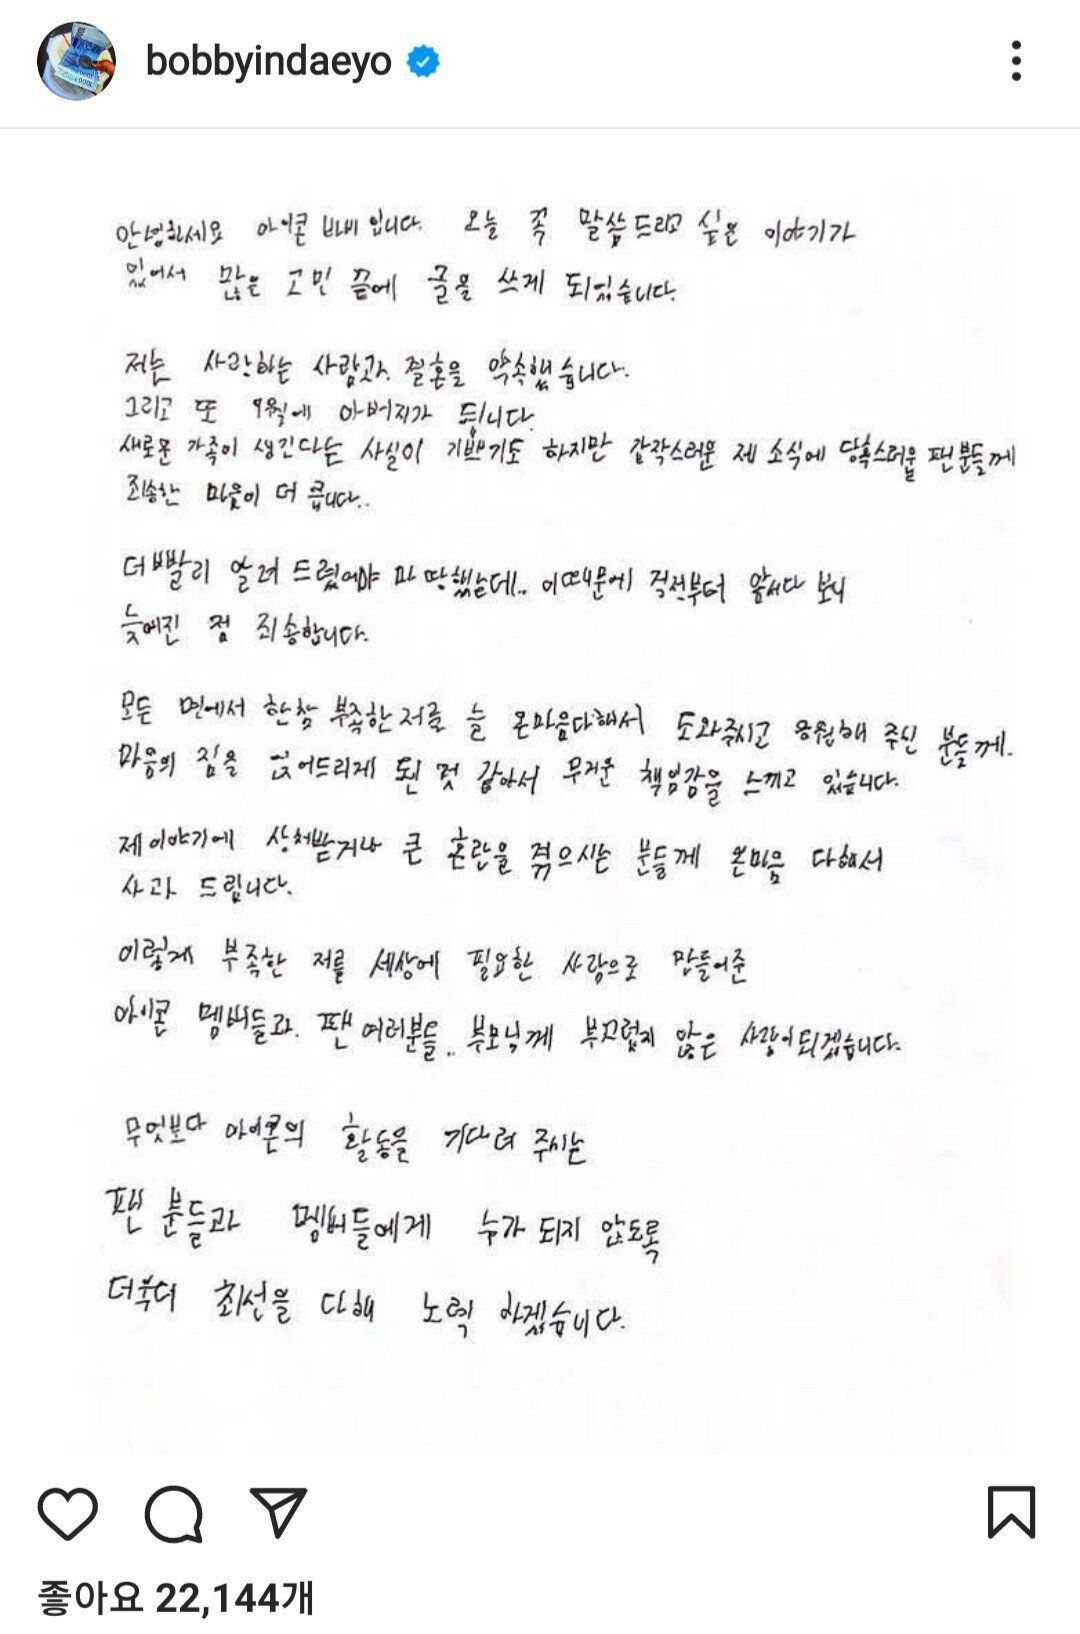 bobbyindaeyo
안녕하세요 아이콘 바비 입니다. 오늘 꼭 말씀드리고 싶은 이야기가
있어서 많은 고민 끝에 글을 쓰게 되었습니다.
저는 사랑하는 사람과 결혼을 약속했습니다.
그리고 또 9월에 아버지가 됩니다.
새로운 가족이 생긴다는 사실이 기쁘기도 하지만 갑작스러운 제 소식에 당혹스러울 팬분들께
죄송한 마음이 더 큽니다..
더 빨리 알려 드렸어야 마땅했는데.. 이 때문에 걱정부터 앞서다 보니
늦어진 점 죄송합니다.
모든 면에서 한참 부족한 저를 늘 온마음다해서 도와주시고 응원해 주신 분들께.
마음의 짐을 얹어드리게 된 것 같아서 무거운 책임감을 느끼고 있습니다.
제 이야기에 상처받거나 큰 혼란을 겪으시는 분들께 온마음 다해서
사과 드립니다.
이렇게 부족한 저를 세상에 필요한 사람으로 만들어준
아이콘 멤버들과. 팬 여러분들.. 부모님께 부끄럽지 않은 사람이 되겠습니다.
무엇보다 아이콘의 활동을 기다려 주시는
팬 분들과 멤버들에게 누가 되지 않도록
더욱더 최선을 다해 노력 하겠습니다.
좋아요 22,144개